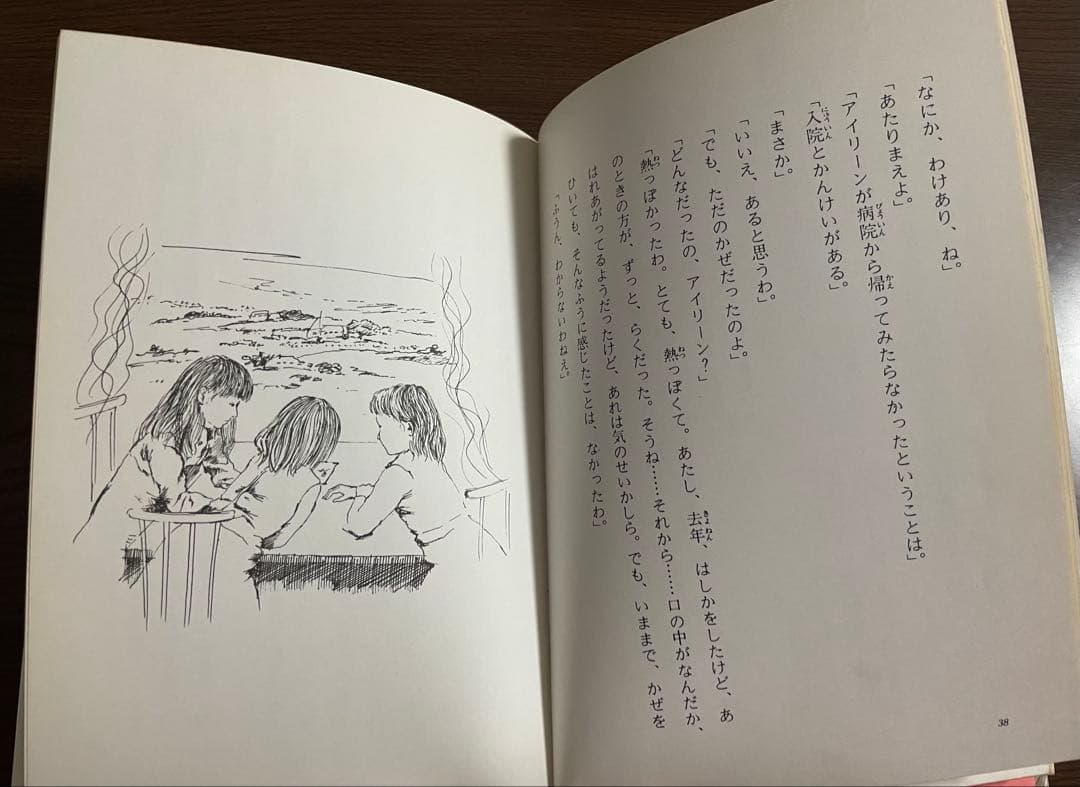 「なにか、わけあり、ね。
「あたりまえよ」
「アイリーンが病院から帰ってみたらなかったということは」
「入院とかんけいがある。
「まさか。
「いいえ、あると思うわ。
「でも、ただのかぜだったのよ。
「どんなだったの、アイリーン？」
「熱っぽかったわ。とても、熱っぽくて。あたし、去年、はしかをしたけど、あ
のときの方が、ずっと、らくだった。そうね……それから……口の中がなんだか、
はれあがってるようだったけど、あれは気のせいかしら。でも、いままで、かぜを
ひいても、そんなふうに感じたことは、なかったわ」
「ふうん、わからないわねえ」
38